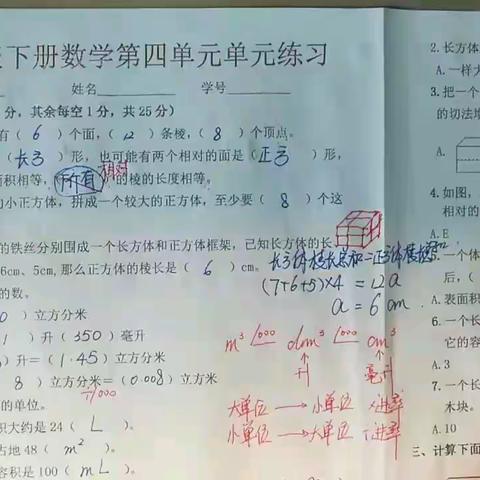 下册数学第四单元单元练习
姓名 学号
分，其余每空1分，共25分）
有（ 6 ）个面，（ 12 ）条棱，（ 8 ）个顶点。
（长方）形，也可能有两个相对的面是（正方）形，
面积相等，所有 相对 的棱的长度相等。
小正方体，拼成一个较大的正方体，至少要（ 8 ）个这
的铁丝分别围成一个长方体和正方体框架，已知长方体的长
6cm、5cm,那么正方体的棱长是（ 6 ）cm。
长方体棱长总和=正方体棱长总和
(7+6+5)×4 = 12a
a = 6 cm
的数。
）立方分米
）升（350）毫升
）升=（1.45）立方分米
8 ）立方分米=（0.008）立方米
÷1000
m³ 1000 dm³ 1000 cm³
升 毫升
大单位 → 小单位 ×进率
小单位 → 大单位 ÷进率
的单位。
积大约是24（ L ）。
占地48（ m² ）。
容积是100（ mL ）。
2.长方体
A.一样大
3.把一个
的切法增
A.
4.如图，
相对的
A.E
一个体
后，（
A.表面积
6.一个长
它的容
A.3
7.一个长
木块。
A.10
三、计算下面